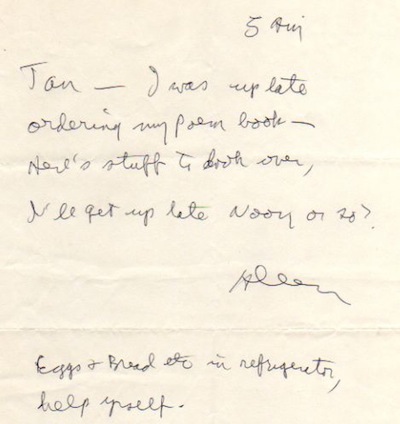 5 AM
Jan — I was up late
ordering my Poem book —
Here's stuff to look over,
I'll get up late Noon or so?
Allen
Eggs & Bread etc in refrigerator,
help yrself.